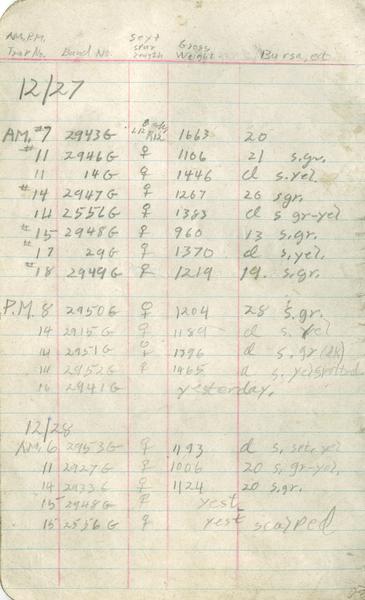 AM, P.M.
Trap No. Band No. Sex + spur length Gross Weight Bursa, ect
12/27
AM. #7 2943G ♂ L12 R12 1663 20
#11 2946G ♀ 1106 21 s.gr.
11 14G ♀ 1446 d s.yel.
#14 2947G ♀ 1267 26 s.gr.
14 2556G ♀ 1383 d s gr-yel
#15 2948G ♀ 960 13 s.gr.
#17 29G ♀ 1370 d s.yel.
#18 2949G ♀ 1219 19. s.gr.
P.M. 8 2950G ♀ 1204 28 s.gr.
14 2915G ♀ 1189 d s. yel
14 2951G ♀ 1396 d s. gr (dk)
14 2952G ♀ 1465 d s. yel
16 2941G yesterday.
12/28
AM. 6 2953G ♀ 1193 d s. yel
11 2927G ♀ 1006 20 s.gr-yel.
14 2933G ♀ 1124 20 s.gr.
15 2948G ♀ yest.
15 2556G ♀ yest scalped